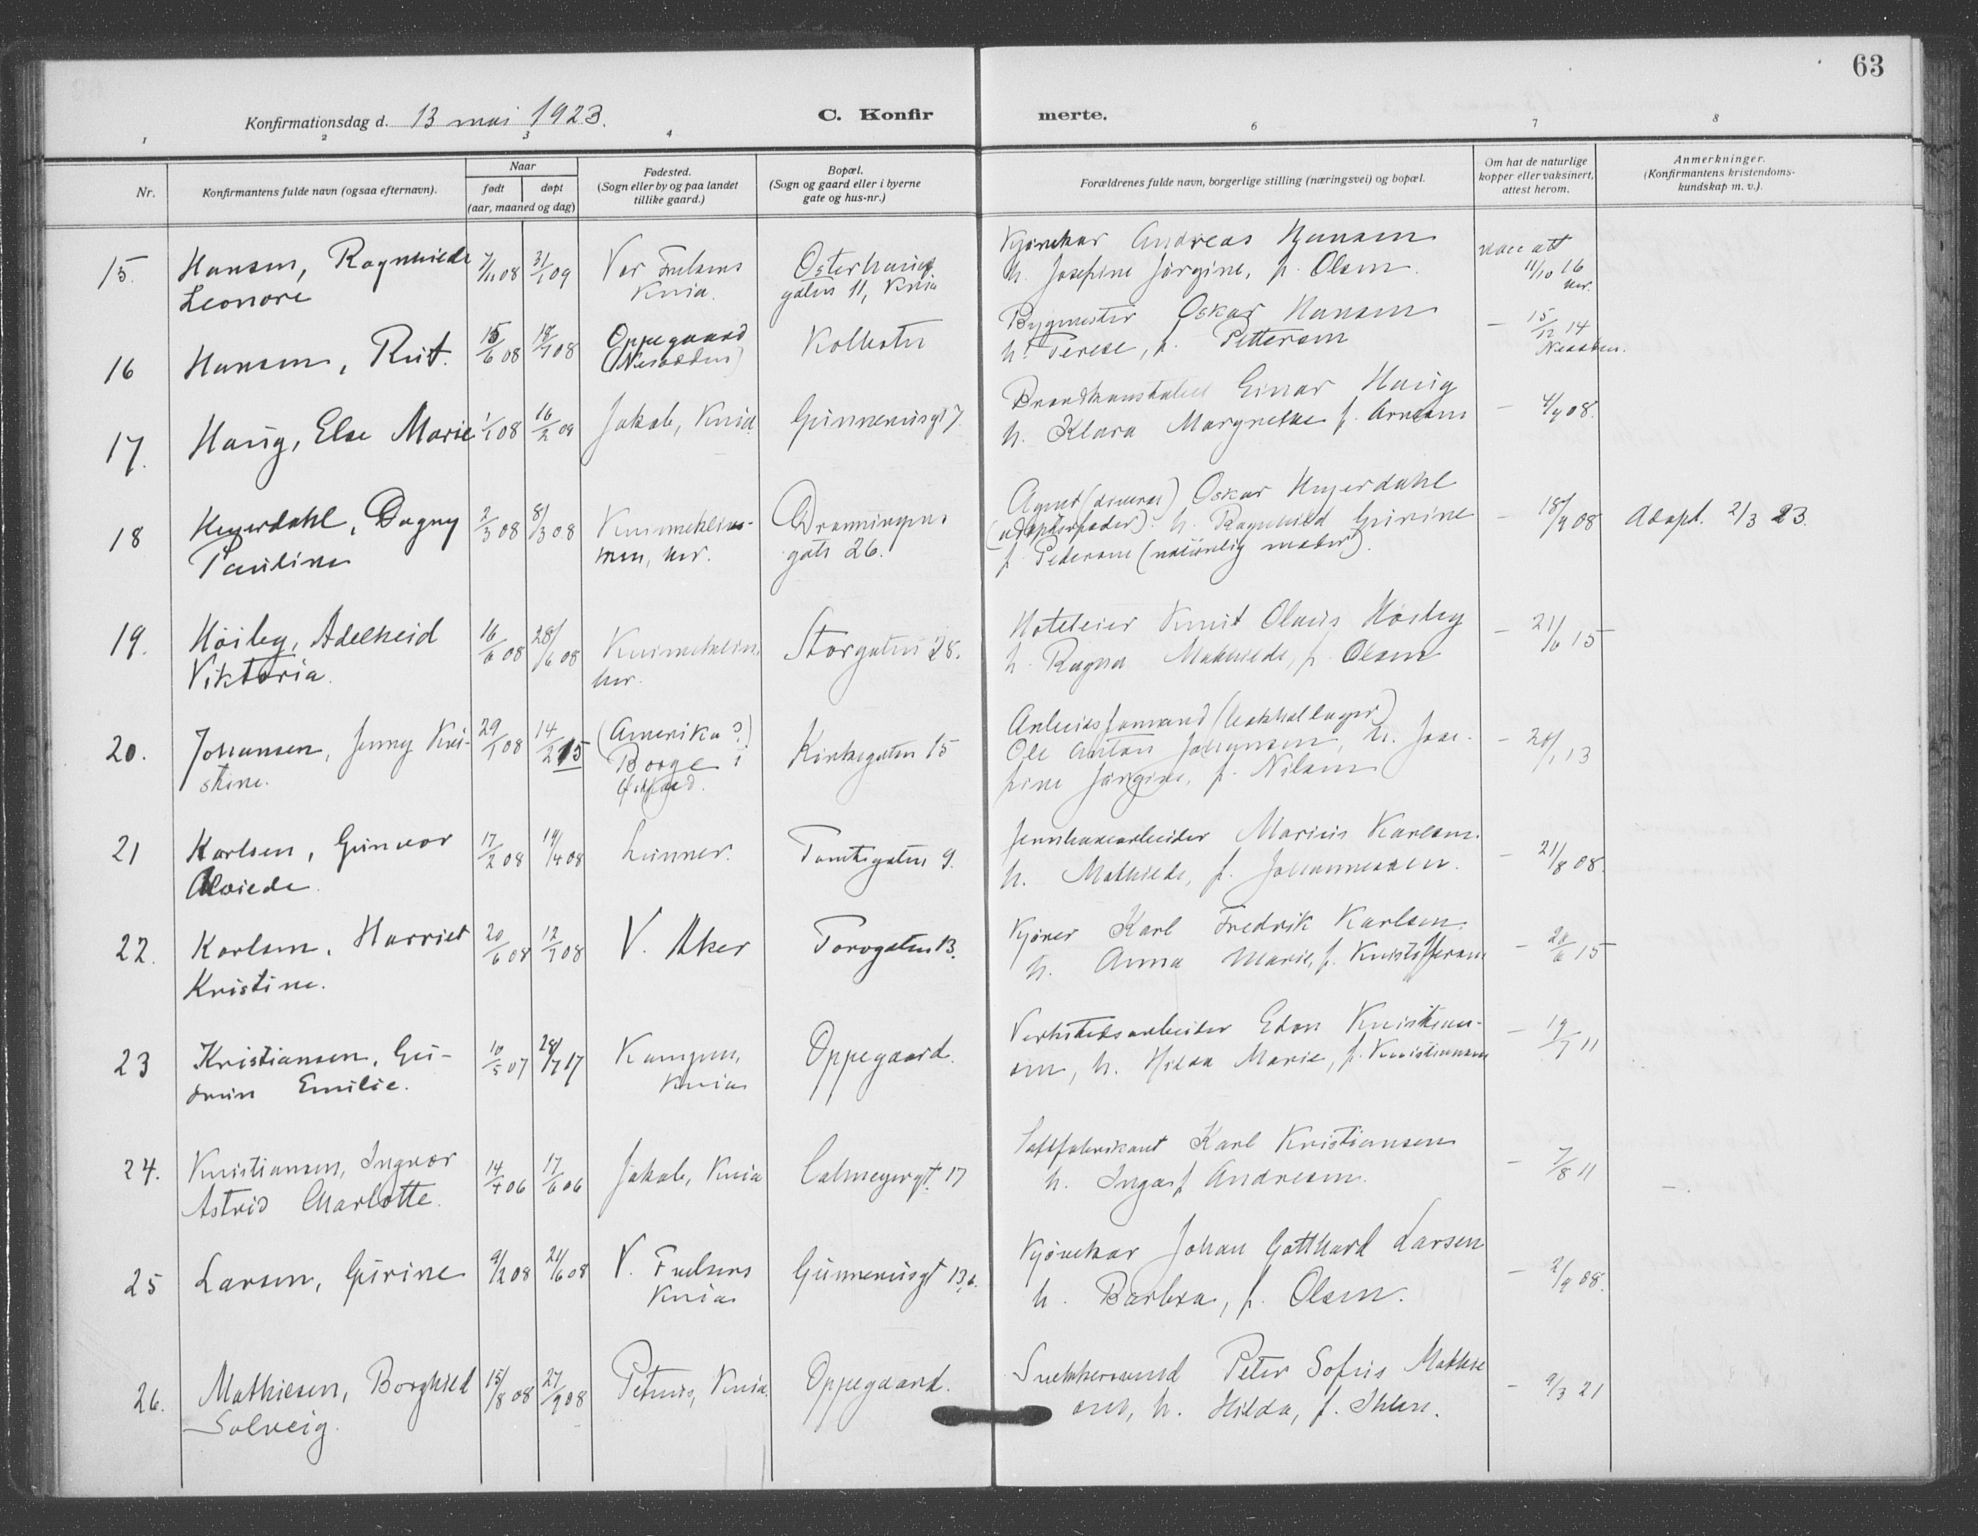 63
Konfirmationsdag d. 13 mai 1923.
C. Konfir
merte.
1
2
3
4
6
7
8
Nr.
Konfirmantens fulde navn (ogsaa efternavn).
Naar
født
døpt
(aar, maaned og dag)
Fødested.
(Sogn eller by og paa landet
tillike gaard.)
Bopæl.
(Sogn og gaard eller i byerne
gate og hus-nr.)
Forældrenes fulde navn, borgerlige stilling (næringsvei) og bopæl.
Om hat de naturlige
kopper eller vaksinert,
attest herom.
Anmerkninger.
(Konfirmantens kristendoms-
kundskap m. v.).
15.
Hansen, Ragnhilde
Leonore
7/11 08
31/1 09
Vor Frelsers
Kria.
Osterhaus
gaten 11, Kria
Kjørekar Andreas Hansen
h. Josefine Jörgine, f. Olsen.
vacc att
11/10 16
her.
16
Hansen, Rut.
15/6 08
18/7 08
Oppegaard
(Nesodden)
Kolbotn
Bygmester Oskar Hansen
h. Terese, f. Pettersen
– 15/12 14
Nesodden.
17.
Haug, Else Marie
1/1 08
16/2 09
Jakob, Kria.
Gunnerusgt 7.
Brandkonstabel Einar Haug
h. Klara Margrethe f. Arnesen
– 4/9 08.
18
Heyerdahl, Dagny
Pauline
2/3 08
8/3 08
Kvindeklinik-
ken, her.
Dronningens
gate 26.
Agent (diverse) Oskar Heyerdahl
(adoptivfader). h. Ragnhild Gurine
f. Pedersen (naturlig moder).
– 18/9 08
Adopt. 2/3 23.
19.
Høiby, Adelheid
Viktoria.
16/6 08
28/6 08
Kvindeklin.
her.
Storgaten 28.
Hoteleier Knut Olaus Høiby
h. Ragna Mathilde, f. Olsen
– 21/6 15
20.
Johansen, Jenny Kri-
stine.
29/1 08
14/2 15
(Amerika?)
Borge i
Østfold.
Kirkegaten 15
Arbeidsformand (trælastlager)
Ole Anton Johansen, h. Jose-
fine Jörgine, f. Nilsen
– 20/1 13
21
Karlsen, Gunvor
Alvilde.
17/2 08
19/4 08
Lunner.
Tomtegaten 9.
Jernbanearbeider Marius Karlsen.
h. Mathilde, f. Johannessen.
– 21/8 08.
22.
Karlsen, Harriet
Kristine.
20/6 08
12/7 08
V. Aker
Torvgaten 13.
Kjører Karl Fredrik Karlsen.
h. Anna Marie, f. Kristoffersen
– 20/6 15
23
Kristiansen, Gu-
drun Emilie.
10/5 07
28/7 17
Kampen,
Kria
Oppegaard.
Verkstedsarbeider Edon Kristian-
sen, h. Hilda Marie, f. Kristiansen
– 19/7 11
24.
Kristiansen, Ingvor
Astrid Charlotte.
14/4 06
17/6 06
Jakob, Kria
Calmeyergt. 17
Saftfabrikant Karl Kristiansen
h. Inga f. Andresen.
– 7/8 11
25
Larsen, Gurine
9/2 08
21/6 08
V. Frelsers
Kria.
Gunnerusgt 13b.
Kjørekar Johan Gotthard Larsen
h. Barbra, f. Olsen.
– 2/9 08.
26.
Mathiesen, Borghild
Solveig.
15/8 08
27/9 08
Petrus, Kria.
Oppegaard.
Snekkersvend Peter Sofus Mathie
sen, h. Hilda, f. Ihlen.
– 9/3 21